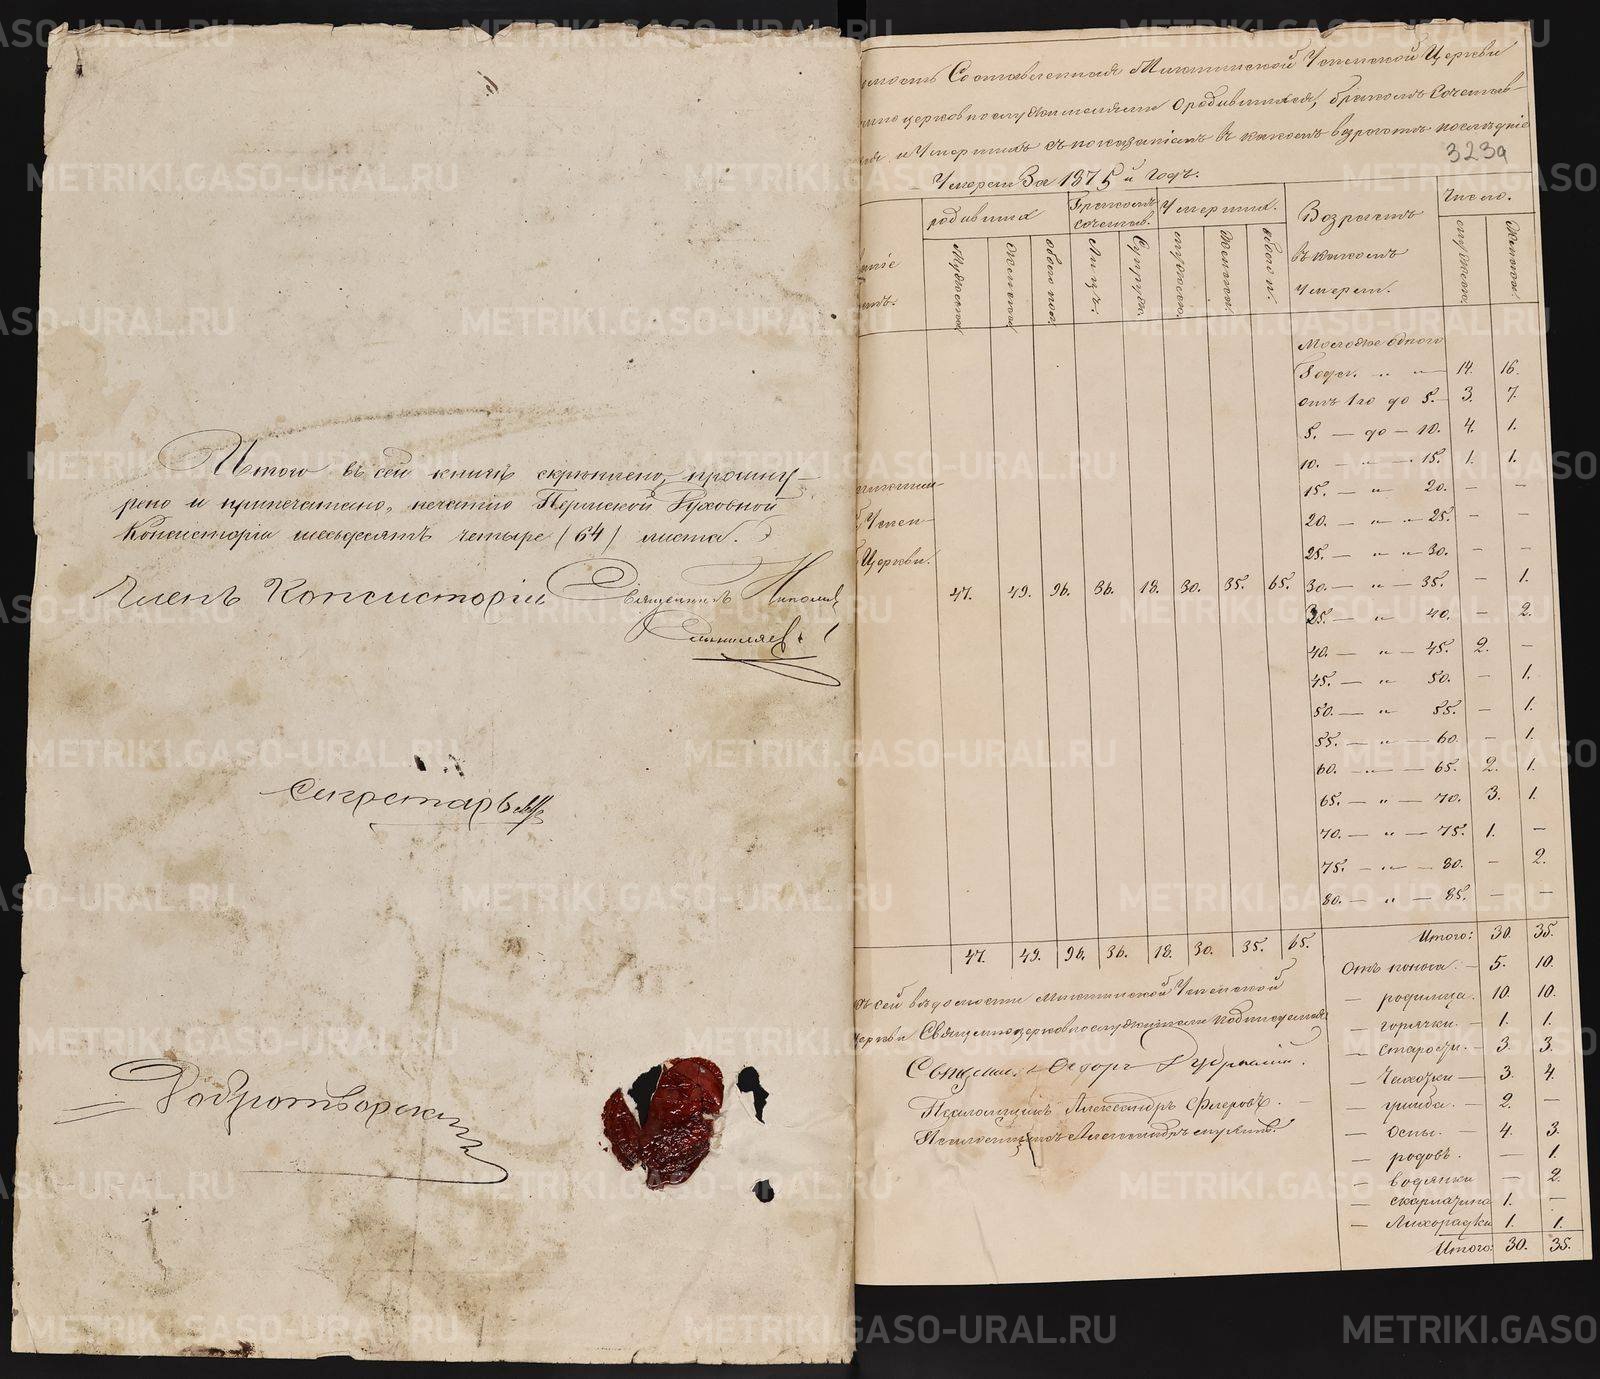 Итого въ сей книгѣ скрѣплено, прошну-
рено и припечатано, печатію Пермской Духовной
Консисторіи шесьдесятъ четыре (64) листа.
Членъ Консисторіи Священникъ Николай
Секретарь
Добротворскій
Составленная Успенской Церкви
о родившихся, бракомъ сочетав-
и умершихъ съ показаніемъ въ какомъ возрастѣ послѣдніе
323а
Умерли За 1875й годъ.
родившихся
Бракомъ сочетав.
Умершихъ.
Возрастъ въ какомъ умерли.
Число.
Мужеска
Женска
обоего пол.
Лицъ.
Супруж.
мужеск.
Женск.
обоего п.
мужеск.
Женск.
Моложе одного
Года. " " — 14. 16.
отъ 1го до 5. — 3. 7.
5. — до — 10. 4. 1.
10. — " — 15. 1. 1.
15. — " 20. — —
20. — " — 25. — —
25. — " — 30. — —
Успен-
Церкви.
47. 49. 96. 36. 18. 30. 35. 65. 30. — " — 35. — 1.
35. — " 40. — 2.
40. — " — 45. 2. —
45. — " 50. — 1.
50. — " 55. — 1.
55. — " — 60. — 1.
60. — " — 65. 2. 1.
65. — " — 70. 3. 1.
70. — " — 75. 1. —
75. — " — 80. — 2.
80. — " — 85. — —
Итого: 30. 35.
47. 49. 96. 36. 18. 30. 35. 65.
Отъ поноса. — 5. 10.
— родимца. 10. 10.
— горячки. — 1. 1.
— старости. — 3. 3.
— Чахотки — 3. 4.
— гриба. — 2. —
— Оспы. — 4. 3.
— родовъ. — 1.
— водянки — 2.
— скарлатина 1. —
— Лихорадки 1. 1.
Итого: 30. 35.
къ сей вѣдомости Успенской
Церкви Священноцерковнослужители подписуемся
Священ. Ѳедоръ
Псаломщикъ Александръ Флеровъ.
Псаломщикъ Александръ
METRIKI.GASO-URAL.RU